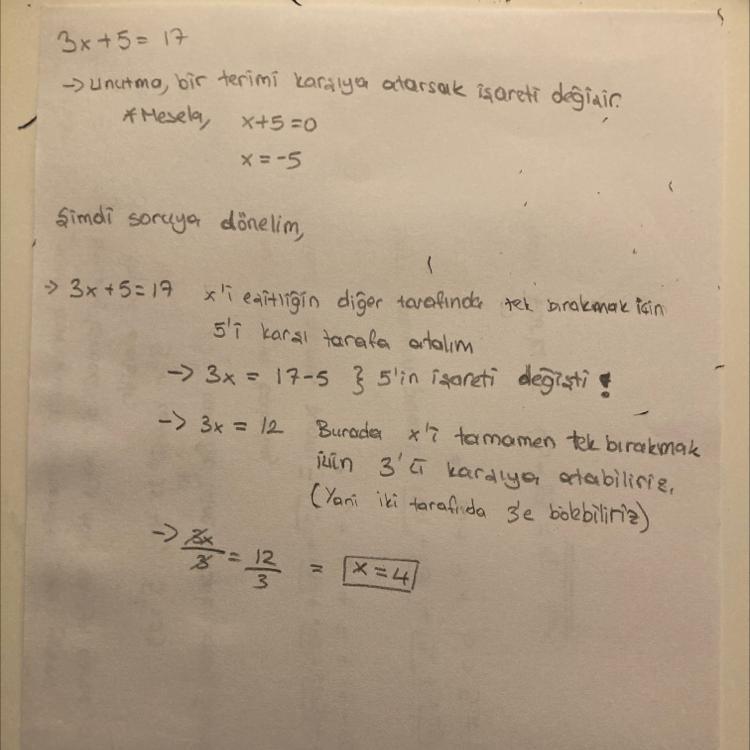 3x+5=17
→ Unutma, bir terimi karşıya atarsak işareti değişir.
* Mesela, x+5=0
x=-5
Şimdi soruya dönelim,
→ 3x+5=17 x'i eşitliğin diğer tarafında tek bırakmak için
5'i karşı tarafa atalım
→ 3x = 17-5 } 5'in işareti değişti !
→ 3x = 12 Burada x'i tamamen tek bırakmak
için 3'ü karşıya atabiliriz.
(Yani iki tarafıda 3'e bölebiliriz)
→ 3x/3 = 12/3 = x=4